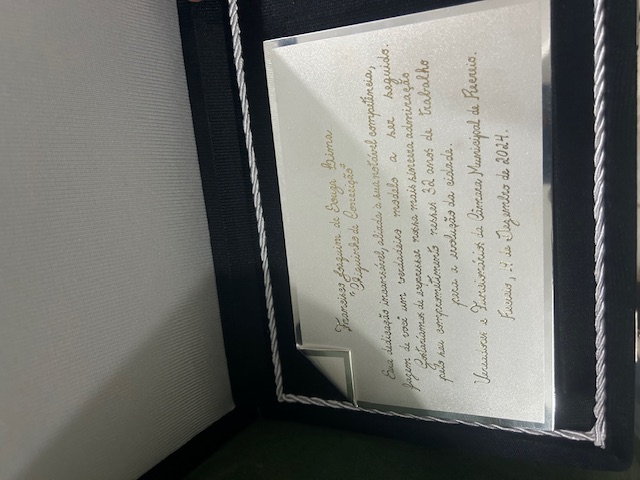 Francisco Joaquim de Souza Lima
"Chiquinho da Conceição"
Essa dedicação incansável, aliada a sua notável competência,
fazem de você um verdadeiro modelo a ser seguido.
Gostaríamos de expressar nossa mais sincera admiração
pelo seu comprometimento nesses 32 anos de trabalho
para a evolução da cidade.
Vereadores e Funcionários da Câmara Municipal de
de Dezembro de 2024.